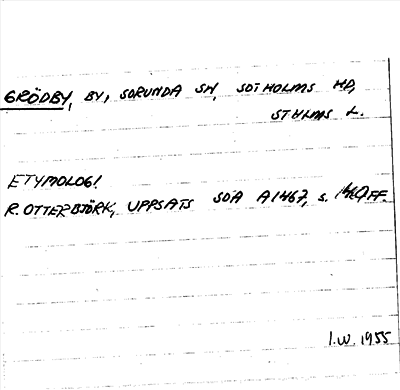 GRÖDBY, BY, SORUNDA SN, SOTHOLMS HD,
STHLMS L.
ETYMOLOGI
R. OTTERBJÖRK, UPPSATS SOÄ A1467, s. FF.
I.W. 1955